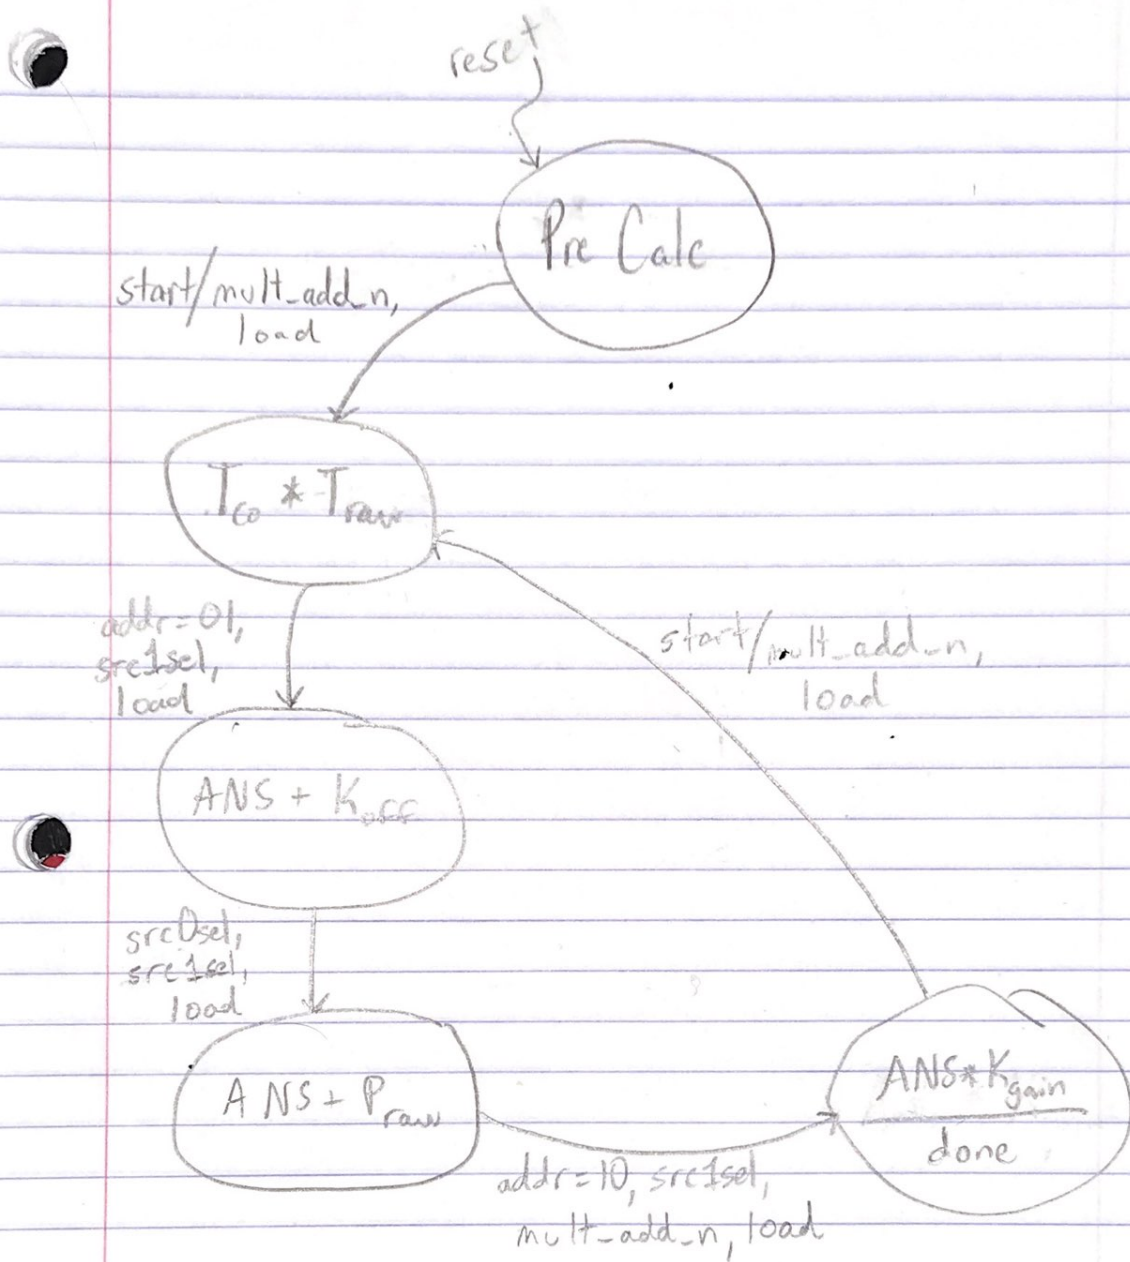 reset
Pre Calc
start/mult_add_n,
load
T_co * T_raw
addr=01,
src1sel,
load
start/mult_add_n,
load
ANS + K_off
src0sel,
src1sel,
load
ANS + P_raw
ANS*K_gain
done
addr=10, src1sel,
mult_add_n, load